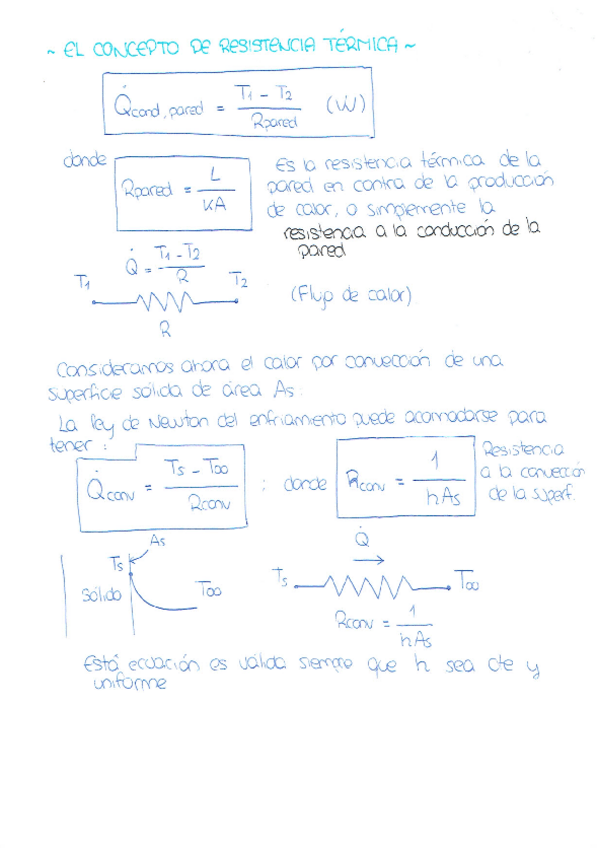 ~ EL CONCEPTO DE RESISTENCIA TÉRMICA ~
Q̇cond, pared = T1 - T2 / Rpared (W)
donde Rpared = L / kA
Es la resistencia térmica de la
pared en contra de la producción
de calor, o simplemente la
resistencia a la conducción de la
pared
Q̇ = T1 - T2 / R
T1 T2
R
(Flujo de calor)
Consideramos ahora el calor por convección de una
superficie sólida de área As:
La ley de Newton del enfriamiento puede acomodarse para
tener:
Q̇conv = Ts - T∞ / Rconv ; donde Rconv = 1 / hAs
Resistencia
a la convección
de la superf.
As
Ts
Sólido
T∞
Q̇
Ts T∞
Rconv = 1 / hAs
Está ecuación es válida siempre que h sea cte y
uniforme